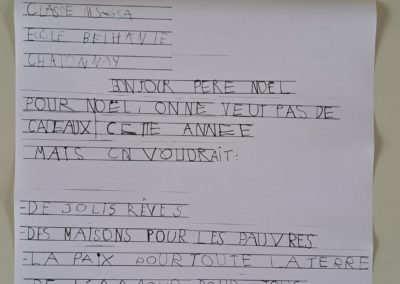 CLASSE MS-GSA
ECOLE BETHANIE
CHATONNAY
BONJOUR PERE NOEL
POUR NOEL, ON NE VEUT PAS DE
CADEAUX CETTE ANNEE
MAIS ON VOUDRAIT:
-DE JOLIS RÊVES
-DES MAISONS POUR LES PAUVRES
-LA PAIX POUR TOUTE LA TERRE
-DE L'AMOUR POUR TOUS